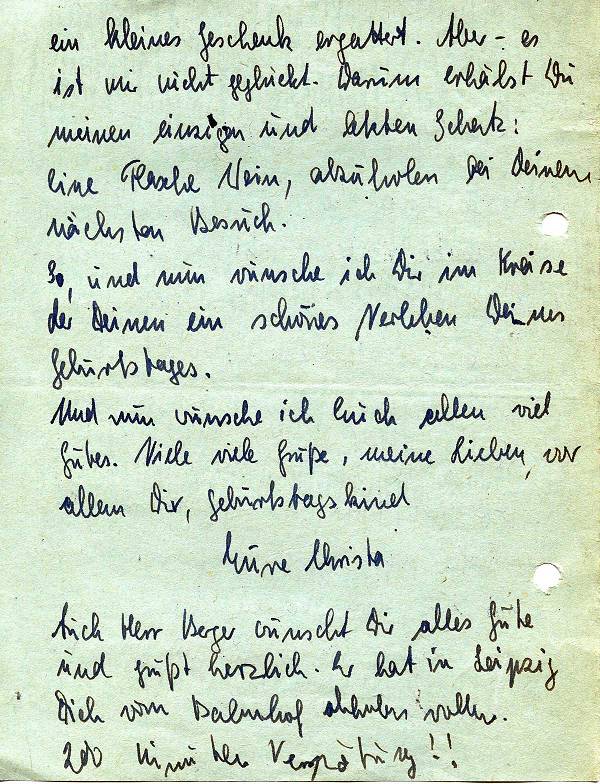 ein kleines Geschenk ergattert. Aber – es
ist mir nicht geglückt. Darum erhälst Du
meinen einzigen und letzten Schatz:
eine Flasche Wein, abzuholen bei Deinem
nächsten Besuch.
So, und nun wünsche ich Dir im Kreise
der Deinen ein schönes Verleben Deines
Geburtstages.
Und nun wünsche ich Euch allen viel
Gutes. Viele viele Grüße, meine Lieben, vor
allem Dir, Geburtstagskind
Eure Christa
Auch Herr Berger wünscht Dir alles Gute
und grüßt herzlich. Er hat in Leipzig
Dich vom Bahnhof abholen wollen.
200 Minuten Verspätung!!